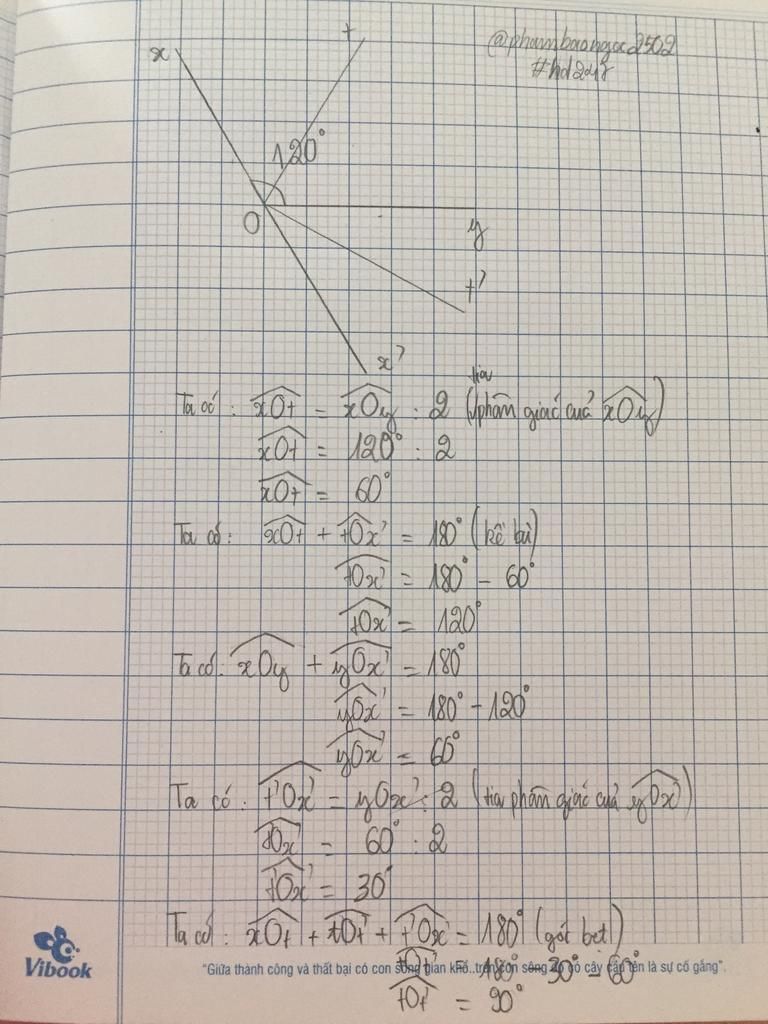 @phambaongoc2502
#hd247
x
t
120°
O
y
t'
x'
Ta có: xOt = xOy : 2 (tia phân giác cuả xOy)
xOt = 120° : 2
xOt = 60°
Ta có: xOt + tOx' = 180° (kề bù)
tOx' = 180° - 60°
tOx' = 120°
Ta có: xOy + yOx' = 180°
yOx' = 180° - 120°
yOx' = 60°
Ta có: t'Ox' = yOx' : 2 (tia phân giác cuả yOx')
t'Ox' = 60° : 2
t'Ox' = 30°
Ta có: xOt + tOt' + t'Ox' = 180° (góc bet)
tOt' = 180° - 30° - 60°
tOt' = 90°
Vibook
"Giữa thành công và thất bại có con sông gian khổ..trên con sông đó có cây cầu tên là sự cố gắng".